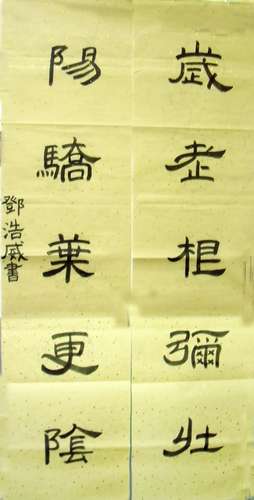 歲老根彌壯
陽驕葉更陰
鄧浩威書